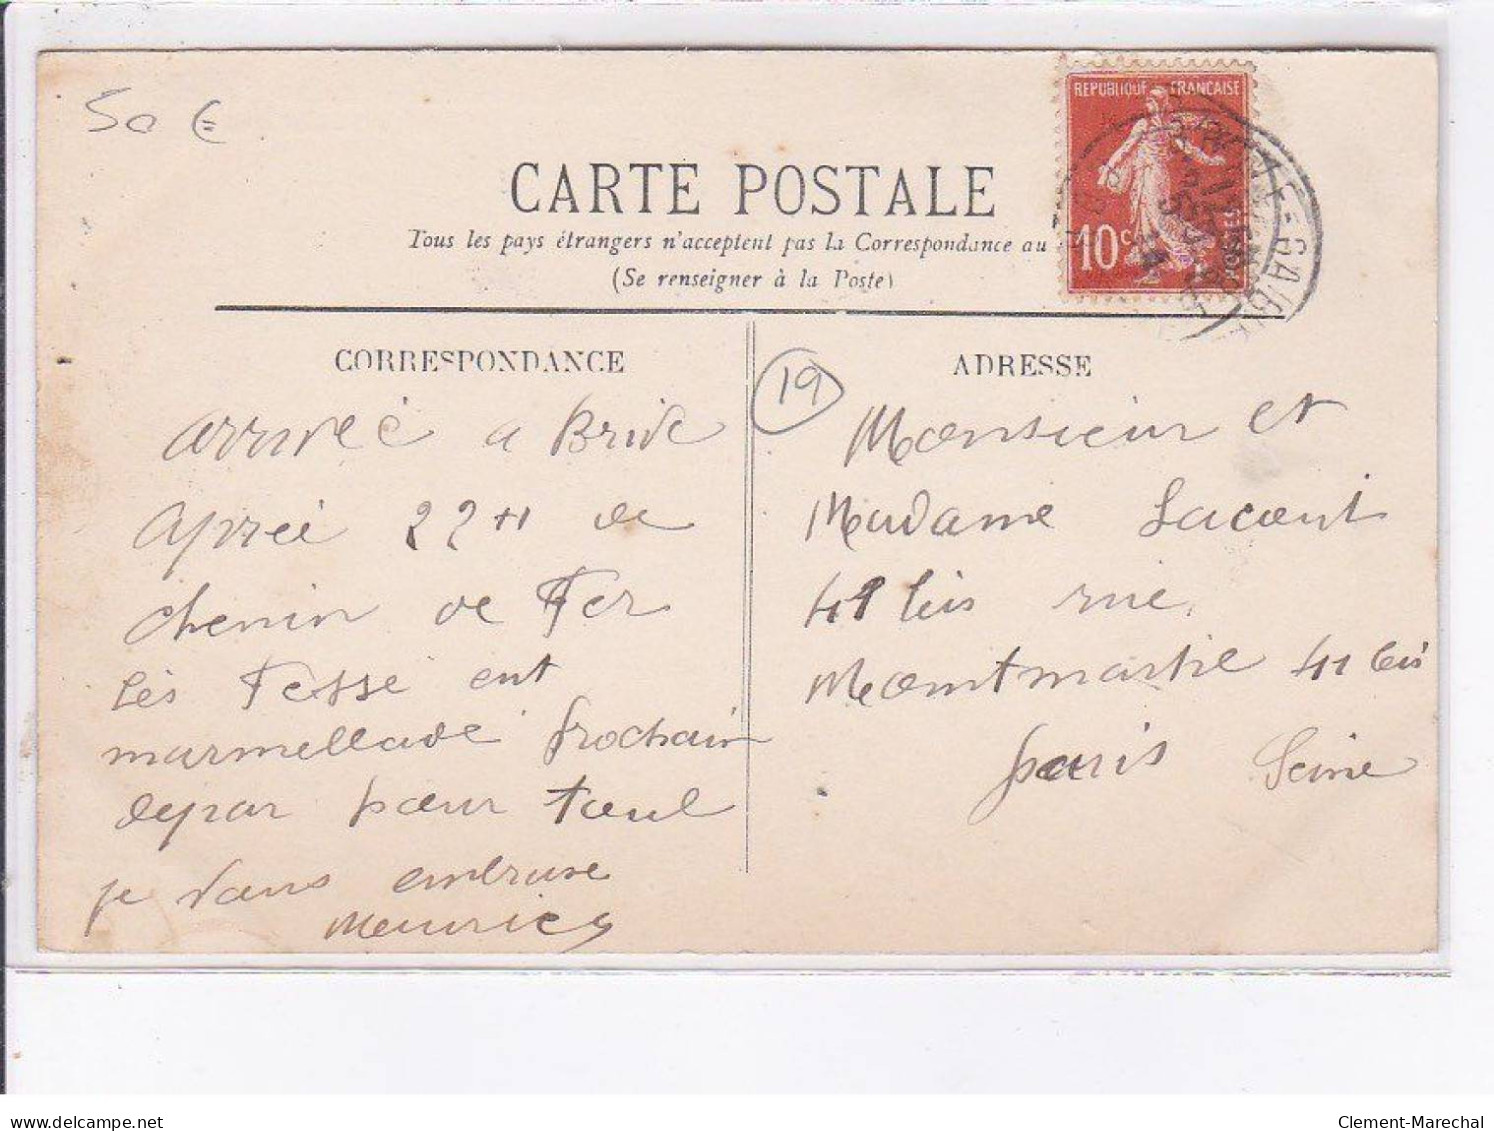 50 €
CARTE POSTALE
Tous les pays étrangers n'acceptent pas la Correspondance au
(Se renseigner à la Poste)
REPUBLIQUE FRANÇAISE
10 c
CORRESPONDANCE
19
ADRESSE
arrivée a Brive
après 22 H de
chemin de Fer
les Fesse ent
marmellade prochain
depar pour Toul
je vous embrase
Maurice
Monsieur et
Madame Lacout
41 bis rue
Montmartre 41 bis
paris Seine
delcampe.net
Clement-Marechal